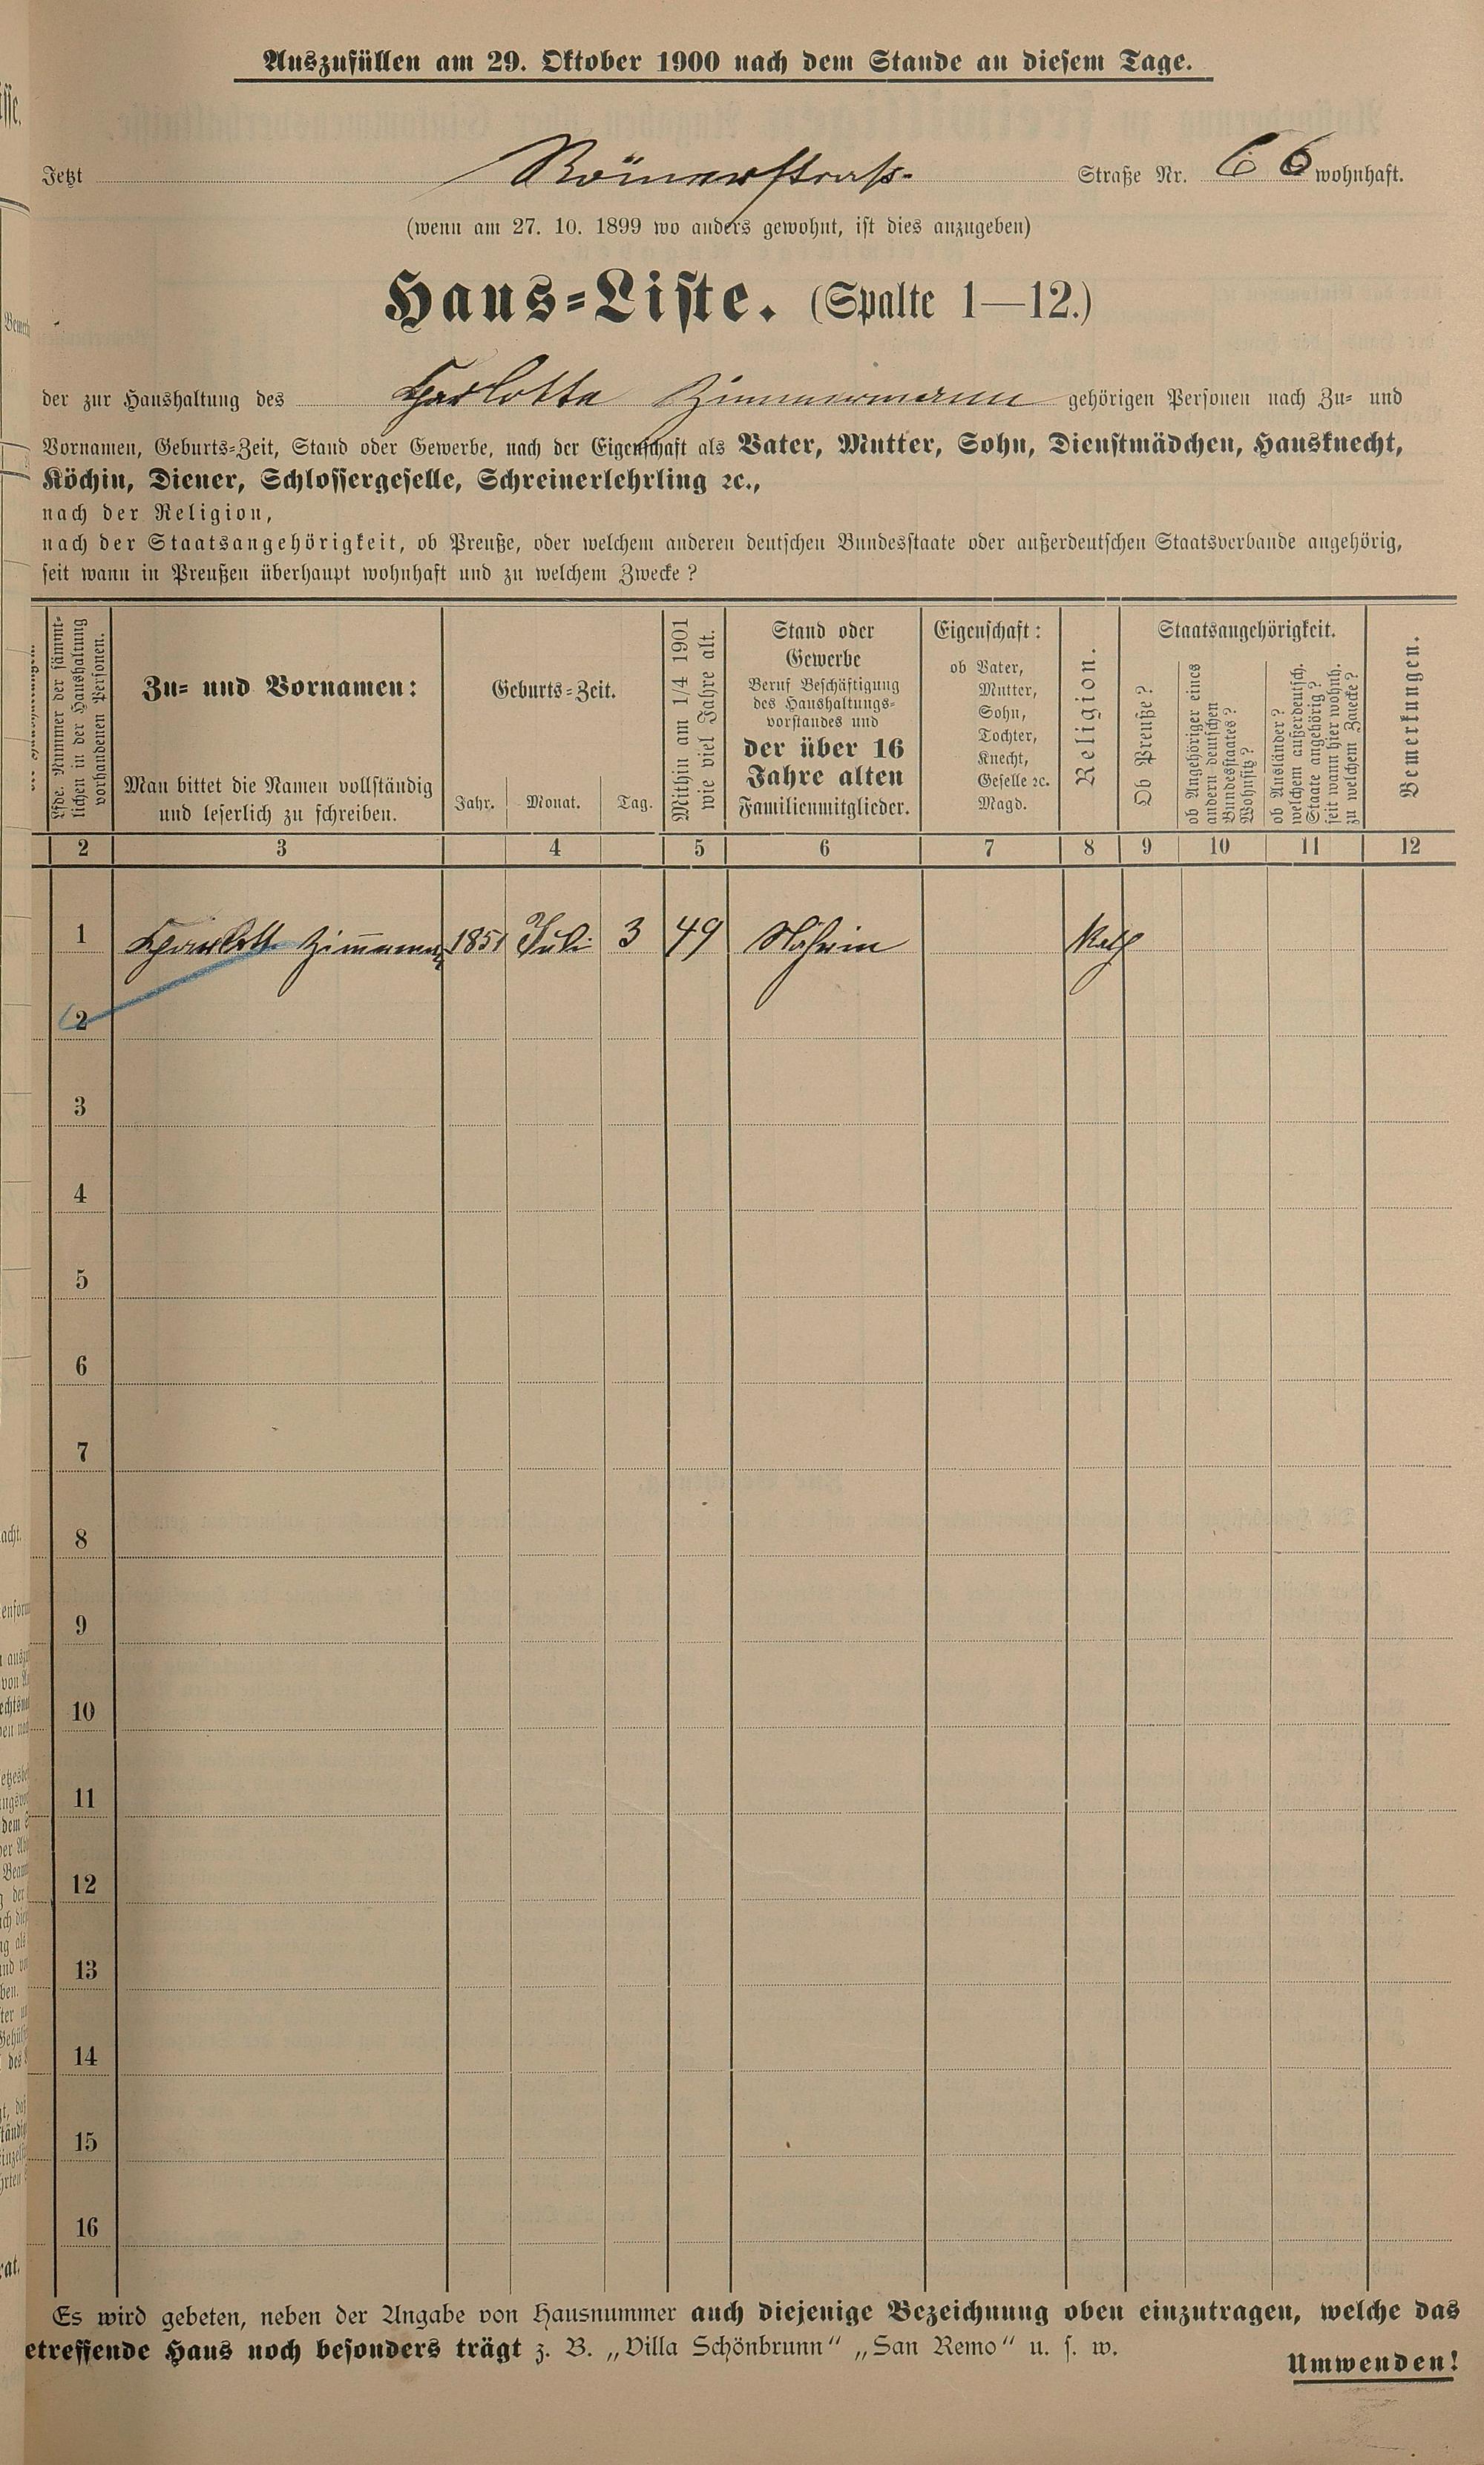 Auszufüllen am 29. Oktober 1900 nach dem Stande an diesem Tage.
Jetzt Römerstraß. Straße Nr. 66 wohnhaft.
(wenn am 27. 10. 1899 wo anders gewohnt, ist dies anzugeben)
Haus-Liste. (Spalte 1—12.)
der zur Haushaltung des Zimmermann gehörigen Personen nach Zu- und
Vornamen, Geburts-Zeit, Stand oder Gewerbe, nach der Eigenschaft als Vater, Mutter, Sohn, Dienstmädchen, Hausknecht,
Köchin, Diener, Schlossergeselle, Schreinerlehrling ꝛc.,
nach der Religion,
nach der Staatsangehörigkeit, ob Preuße, oder welchem anderen deutschen Bundesstaate oder außerdeutschen Staatsverbande angehörig,
seit wann in Preußen überhaupt wohnhaft und zu welchem Zwecke?
Lfde. Nummer der sämmt-
lichen in der Haushaltung
vorhandenen Personen.
Zu- und Vornamen:
Man bittet die Namen vollständig
und leserlich zu schreiben.
Geburts-Zeit.
Jahr. Monat. Tag.
Mithin am 1/4 1901
wie viel Jahre alt.
Stand oder
Gewerbe
Beruf Beschäftigung
des Haushaltungs-
vorstandes und
der über 16
Jahre alten
Familienmitglieder.
Eigenschaft:
ob Vater,
Mutter,
Sohn,
Tochter,
Knecht,
Geselle ꝛc.
Magd.
Religion.
Staatsangehörigkeit.
Ob Preuße?
ob Angehöriger eines
andern deutschen
Bundesstaates?
Wohnsitz?
ob Ausländer?
welchem außerdeutsch.
Staate angehörig?
seit wann hier wohnh.
zu welchem Zwecke?
Bemerkungen.
2 3 4 5 6 7 8 9 10 11 12
1 Zimmermann 1851 Juli 3 49 Näherin Kath
2
3
4
5
6
7
8
9
10
11
12
13
14
15
16
Es wird gebeten, neben der Angabe von Hausnummer auch diejenige Bezeichnung oben einzutragen, welche das
etreffende Haus noch besonders trägt z. B. „Villa Schönbrunn“ „San Remo“ u. s. w.
Umwenden!